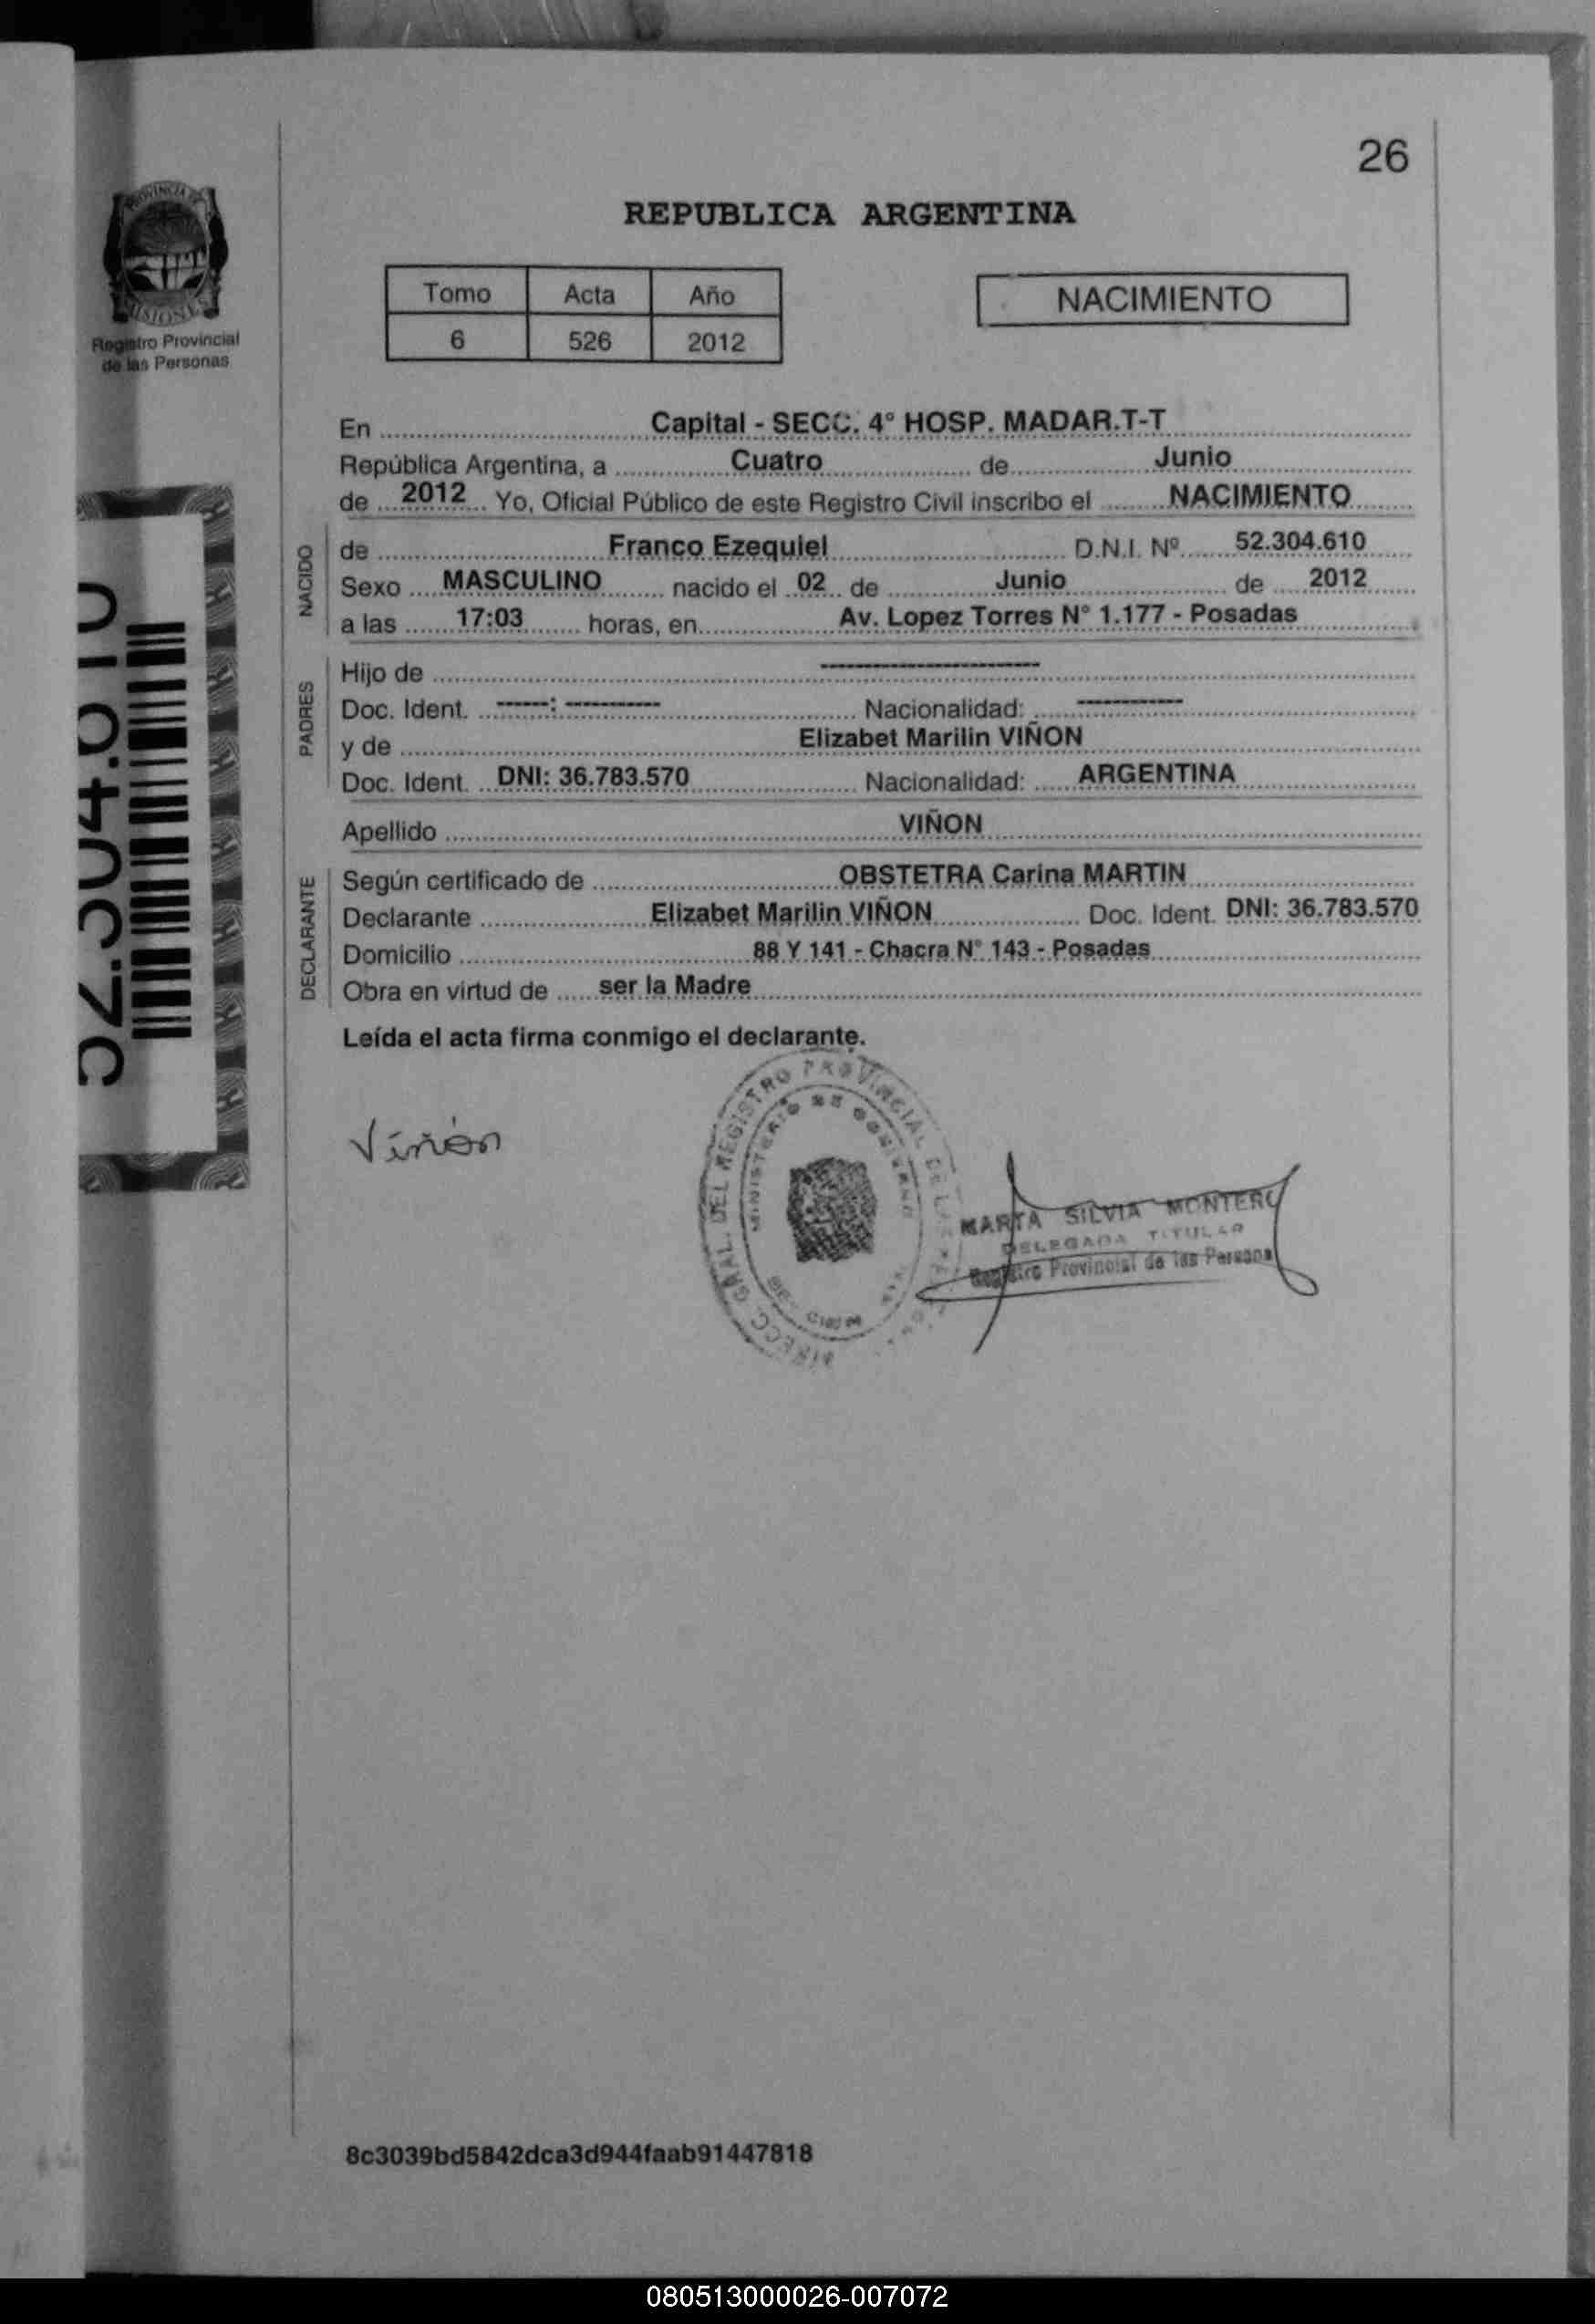 26
REPUBLICA ARGENTINA
PROVINCIA DE MISIONES
Registro Provincial
de las Personas
Tomo Acta Año
6 526 2012
NACIMIENTO
En Capital - SECC. 4° HOSP. MADAR.T-T
República Argentina, a Cuatro de Junio
de 2012 Yo, Oficial Público de este Registro Civil inscribo el NACIMIENTO
NACIDO
de Franco Ezequiel D.N.I. Nº 52.304.610
Sexo MASCULINO nacido el 02 de Junio de 2012
a las 17:03 horas, en Av. Lopez Torres N° 1.177 - Posadas
PADRES
Hijo de --------------------
Doc. Ident. ------: ----------- Nacionalidad: ------------
y de Elizabet Marilin VIÑON
Doc. Ident. DNI: 36.783.570 Nacionalidad: ARGENTINA
Apellido VIÑON
DECLARANTE
Según certificado de OBSTETRA Carina MARTIN
Declarante Elizabet Marilin VIÑON Doc. Ident. DNI: 36.783.570
Domicilio 88 Y 141 - Chacra N° 143 - Posadas
Obra en virtud de ser la Madre
Leída el acta firma conmigo el declarante.
52.304.610
Viñon
DIRECC. GRAL. DEL REGISTRO PROVINCIAL DE LAS
MINISTERIO DE GOBIERNO
MARTA SILVIA MONTERO
DELEGADA TITULAR
Registro Provincial de las Personas
8c3039bd5842dca3d944faab91447818
080513000026-007072